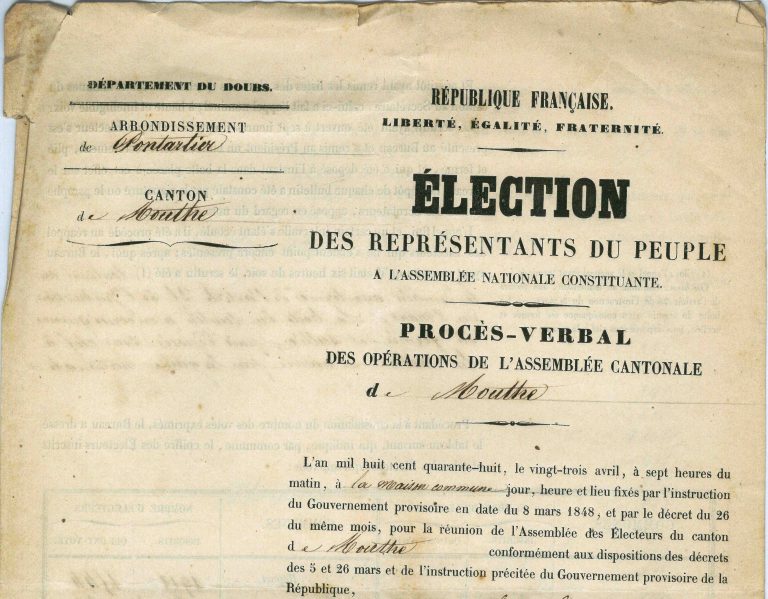 DÉPARTEMENT DU DOUBS.
ARRONDISSEMENT
de Pontarlier
CANTON
de Mouthe
RÉPUBLIQUE FRANÇAISE.
LIBERTÉ, ÉGALITÉ, FRATERNITÉ.
ÉLECTION
DES REPRÉSENTANTS DU PEUPLE
A L'ASSEMBLÉE NATIONALE CONSTITUANTE.
PROCÈS-VERBAL
DES OPÉRATIONS DE L'ASSEMBLÉE CANTONALE
de Mouthe
L'an mil huit cent quarante-huit, le vingt-trois avril, à sept heures du
matin, à la maison commune jour, heure et lieu fixés par l'instruction
du Gouvernement provisoire en date du 8 mars 1848, et par le décret du 26
du même mois, pour la réunion de l'Assemblée des Électeurs du canton
de Mouthe conformément aux dispositions des décrets
des 5 et 26 mars et de l'instruction précitée du Gouvernement provisoire de la
République,